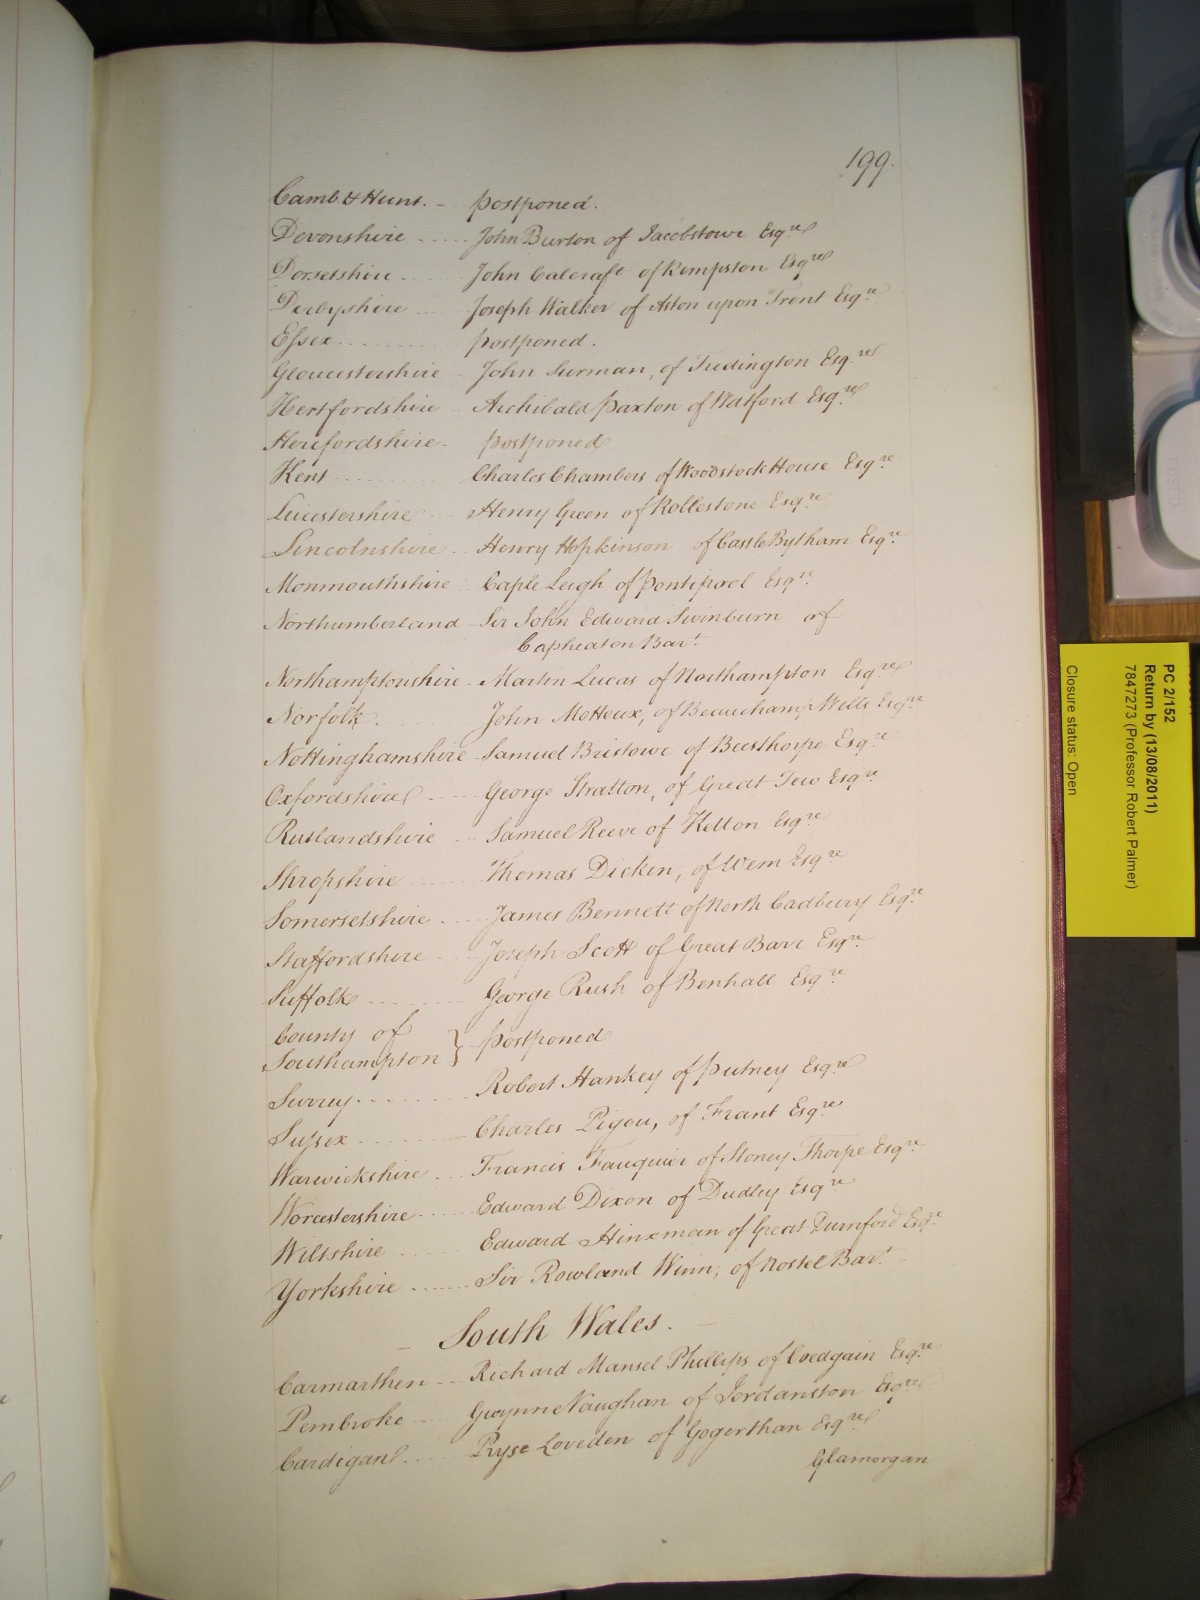 199.
Camb & Hunt. - postponed.
Devonshire ..... John Burton of Jacobstowe Esqre
Dorsetshire .... John Calcraft of Rempston Esqre
Derbyshire .... Joseph Walker of Aston upon Trent Esqre
Essex .......... postponed.
Gloucestershire .. John Surman, of Tredington Esqre
Hertfordshire .. Archibald Paxton of Watford Esqre
Herefordshire - postponed
Kent .......... Charles Chambers of Woodstock House Esqre
Leicestershire ... Henry Green of Rollestone Esqre
Lincolnshire .. Henry Hopkinson of Castle Bytham Esqre
Monmouthshire .. Caple Leigh of Pontipool Esqre
Northumberland - Sir John Edward Swinburn of
Capheaton Bart.
Northamptonshire - Martin Lucas of Northampton Esqre
Norfolk .......... John Motteux, of Beauchamp Wells Esqre
Nottinghamshire - Samuel Bristowe of Beesthorpe Esqre
Oxfordshire .... George Stratton, of Great Tew Esqre
Rutlandshire .... Samuel Reeve of Ketton Esqre
Shropshire ...... Thomas Dicken, of Wem Esqre
Somersetshire .... James Bennett of North Cadbury Esqre
Staffordshire .... Joseph Scott of Great Barr Esqre
Suffolk .......... George Rush of Benhall Esqre
County of
Southampton } postponed
Surrey ........ Robert Hankey of Putney Esqre
Sussex ........ Charles Pigou, of Frant Esqre
Warwickshire .... Francis Fauquier of Stoney Thorpe Esqre
Worcestershire ..... Edward Dixon of Dudley Esqre
Wiltshire ...... Edward Hinxman of Great Durnford Esqre
Yorkshire ...... Sir Rowland Winn, of Nostel Bart.
South Wales.
Carmarthen -- Richard Mansel Phillips of Coedgain Esqre
Pembroke .... Gwynne Vaughan of Jordanston Esqre
Cardigan .... Pryse Loveden of Gogerthan Esqre
Glamorgan
PC 2/152
Return by (13/08/2011)
7847273 (Professor Robert Palmer)
Closure status: Open